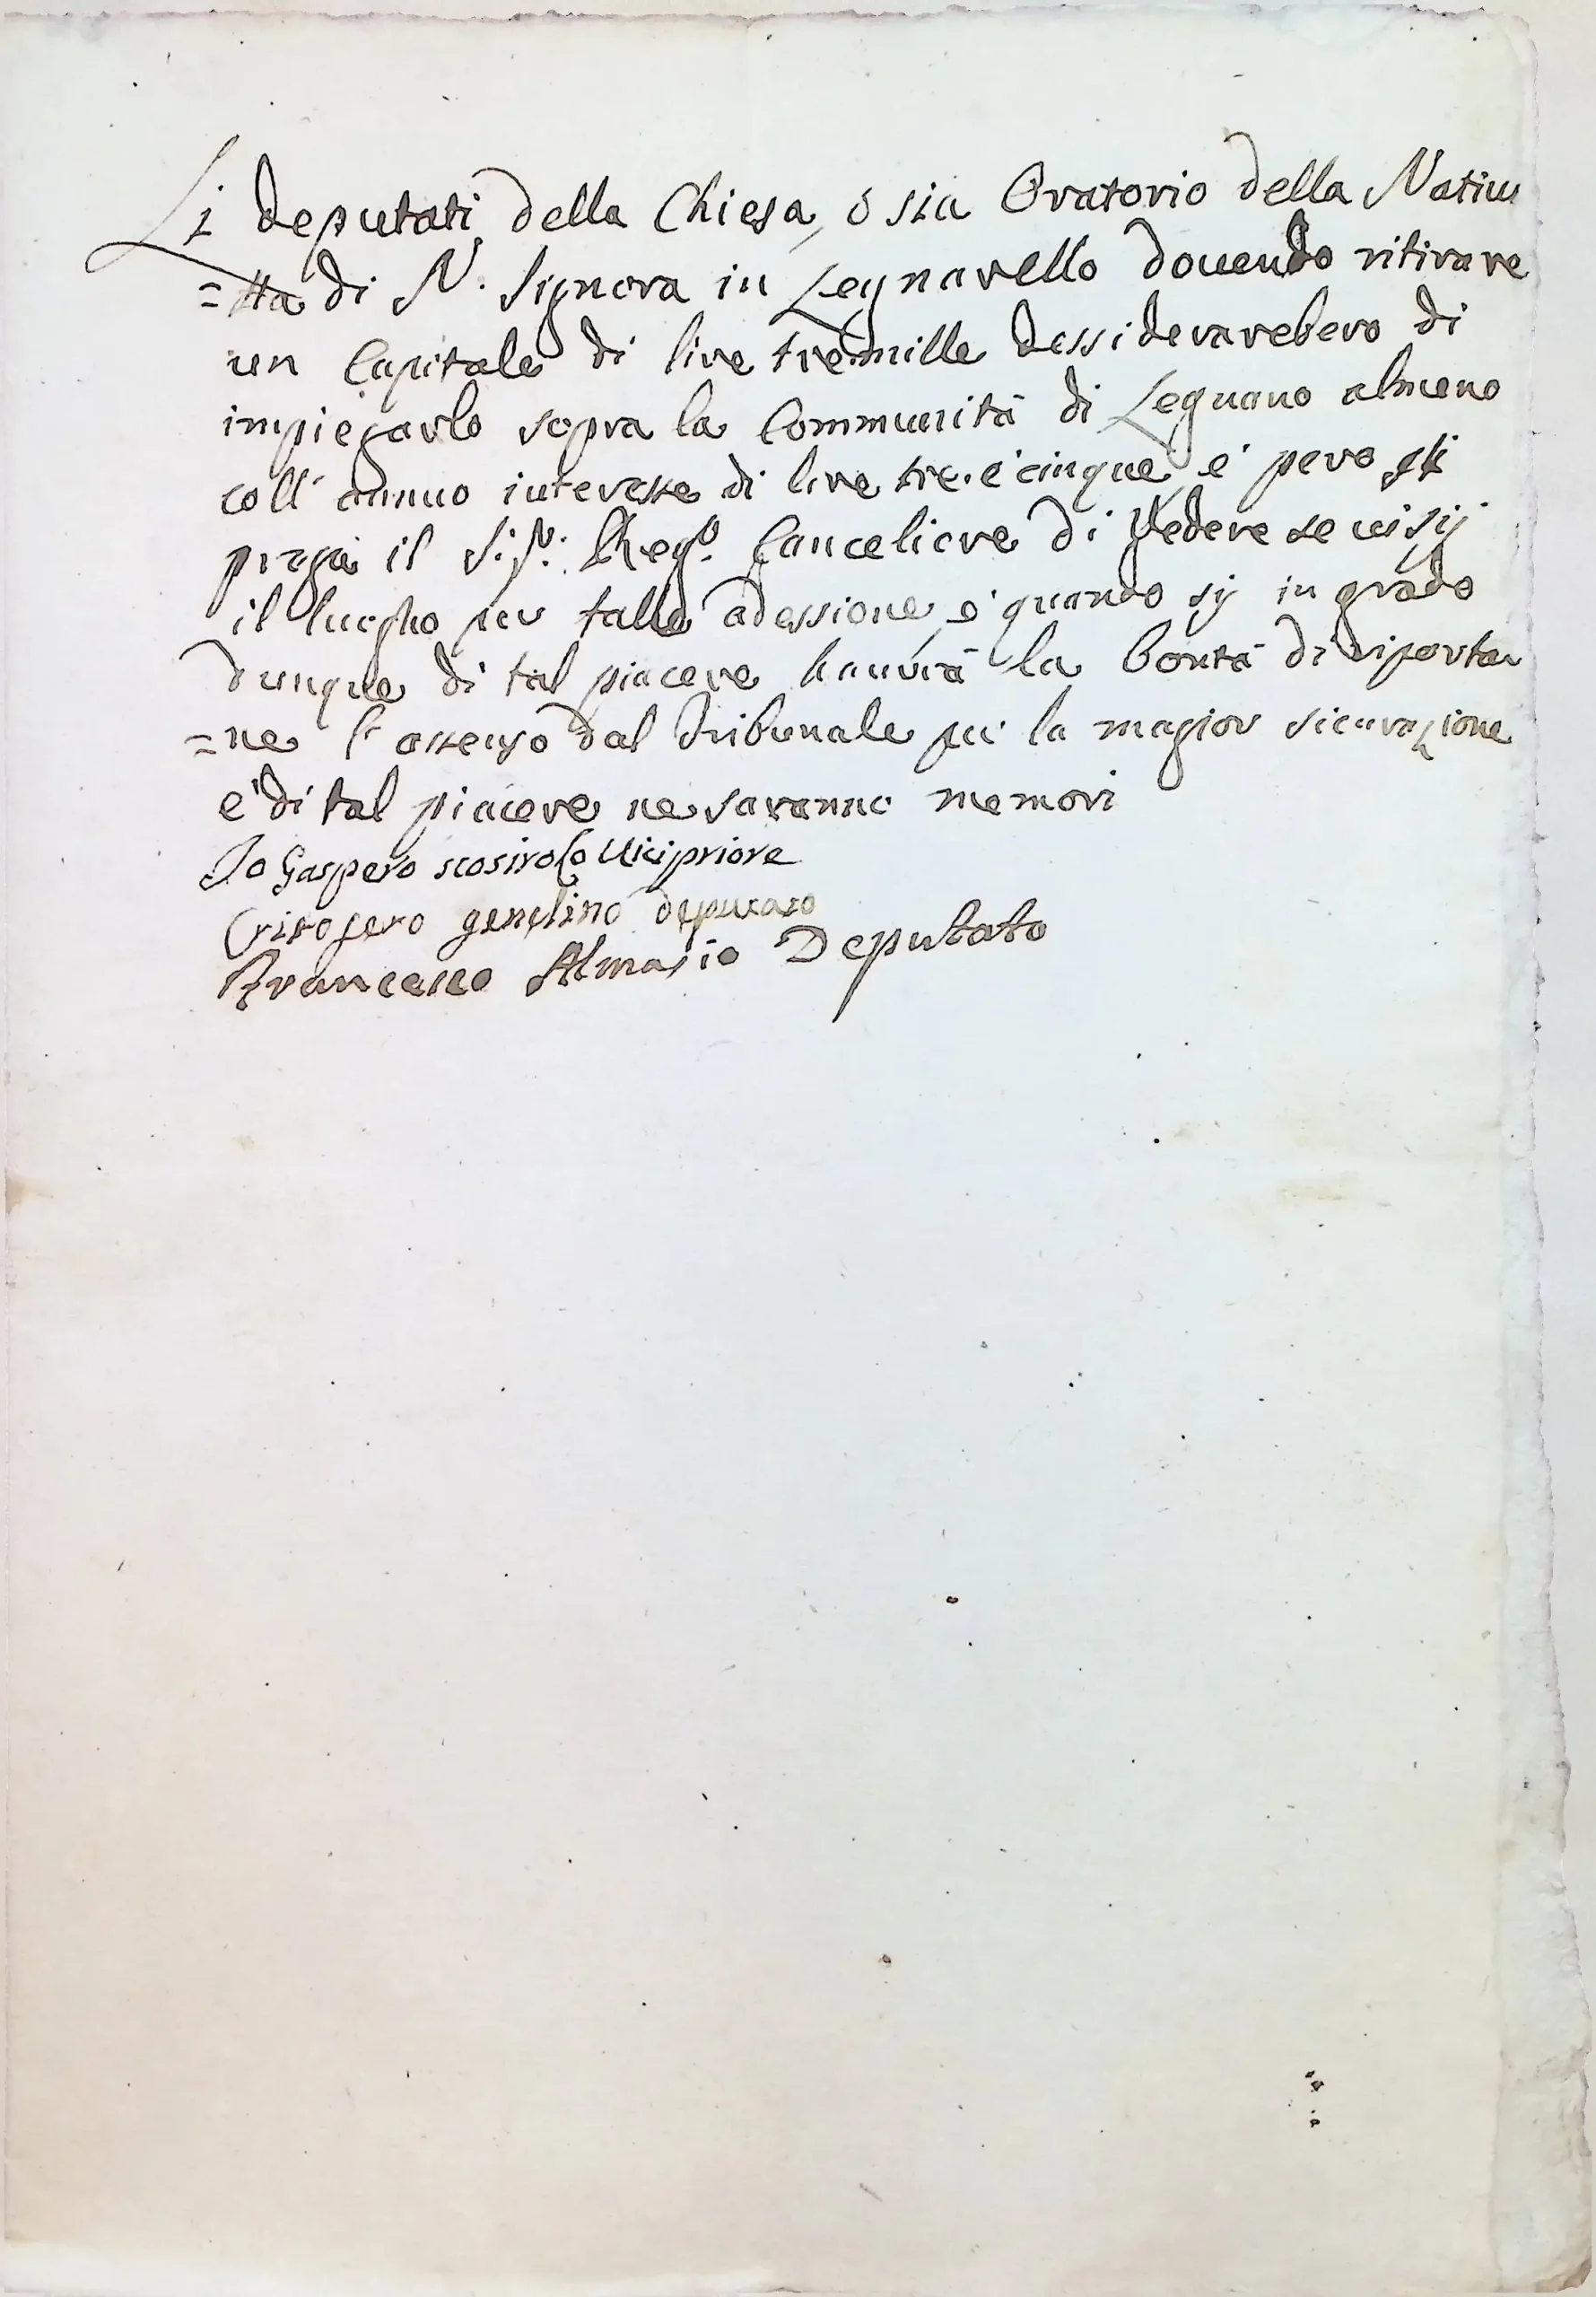 Li deputati della Chiesa, ó sia Oratorio della Nativi
=tta di N. Signora in Legnarello douendo ritirare
un Capitale di lire tremille dessiderarebero di
impiegarlo sopra la Communitá di Legnano almeno
coll' annuo interesse di lire tre. e cinque, e' pero si
prega il S.r Reg.o Canceliere di Vedere se ui sij
il luogho per talle adessione, e' quando sij in grado
dunque di tal piacere hauvrá la bontá di riportar
=ne l' assenso dal Tribunale per la magior sicurazione
e' di tal piacere ne saranno memori
Io Gaspero scosirolo Uicipriore
Crisofero genelino deputato
Francesco Almasio Deputato